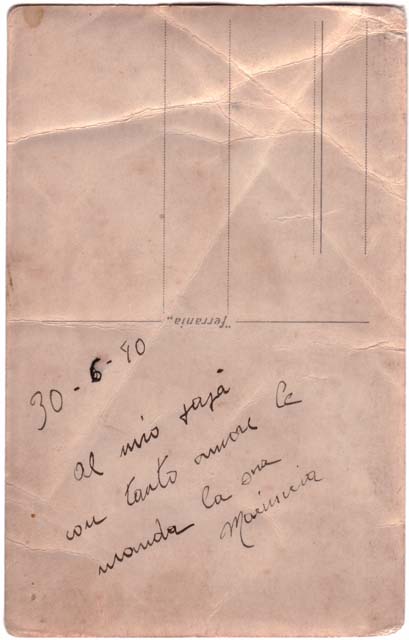 "Ferrania"
30-6-40
al mio papà
con tanto amore le
manda la sua
Mariuccia